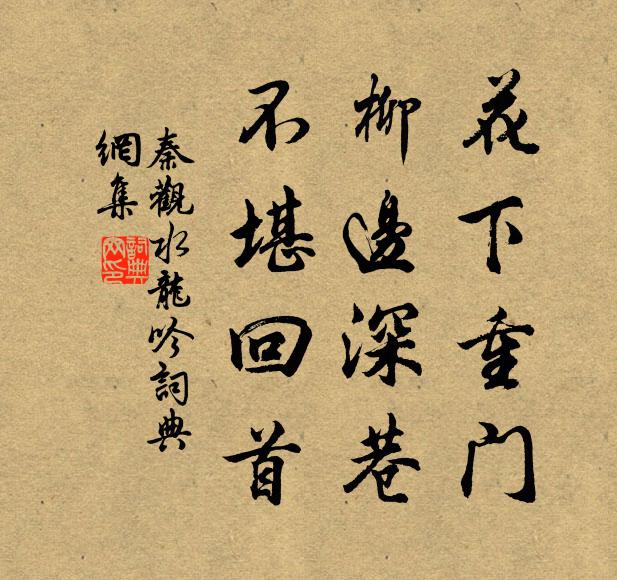 花下重门
柳邊深巷
不堪回首
秦觀水龍吟詞典
網集
詞典
网印